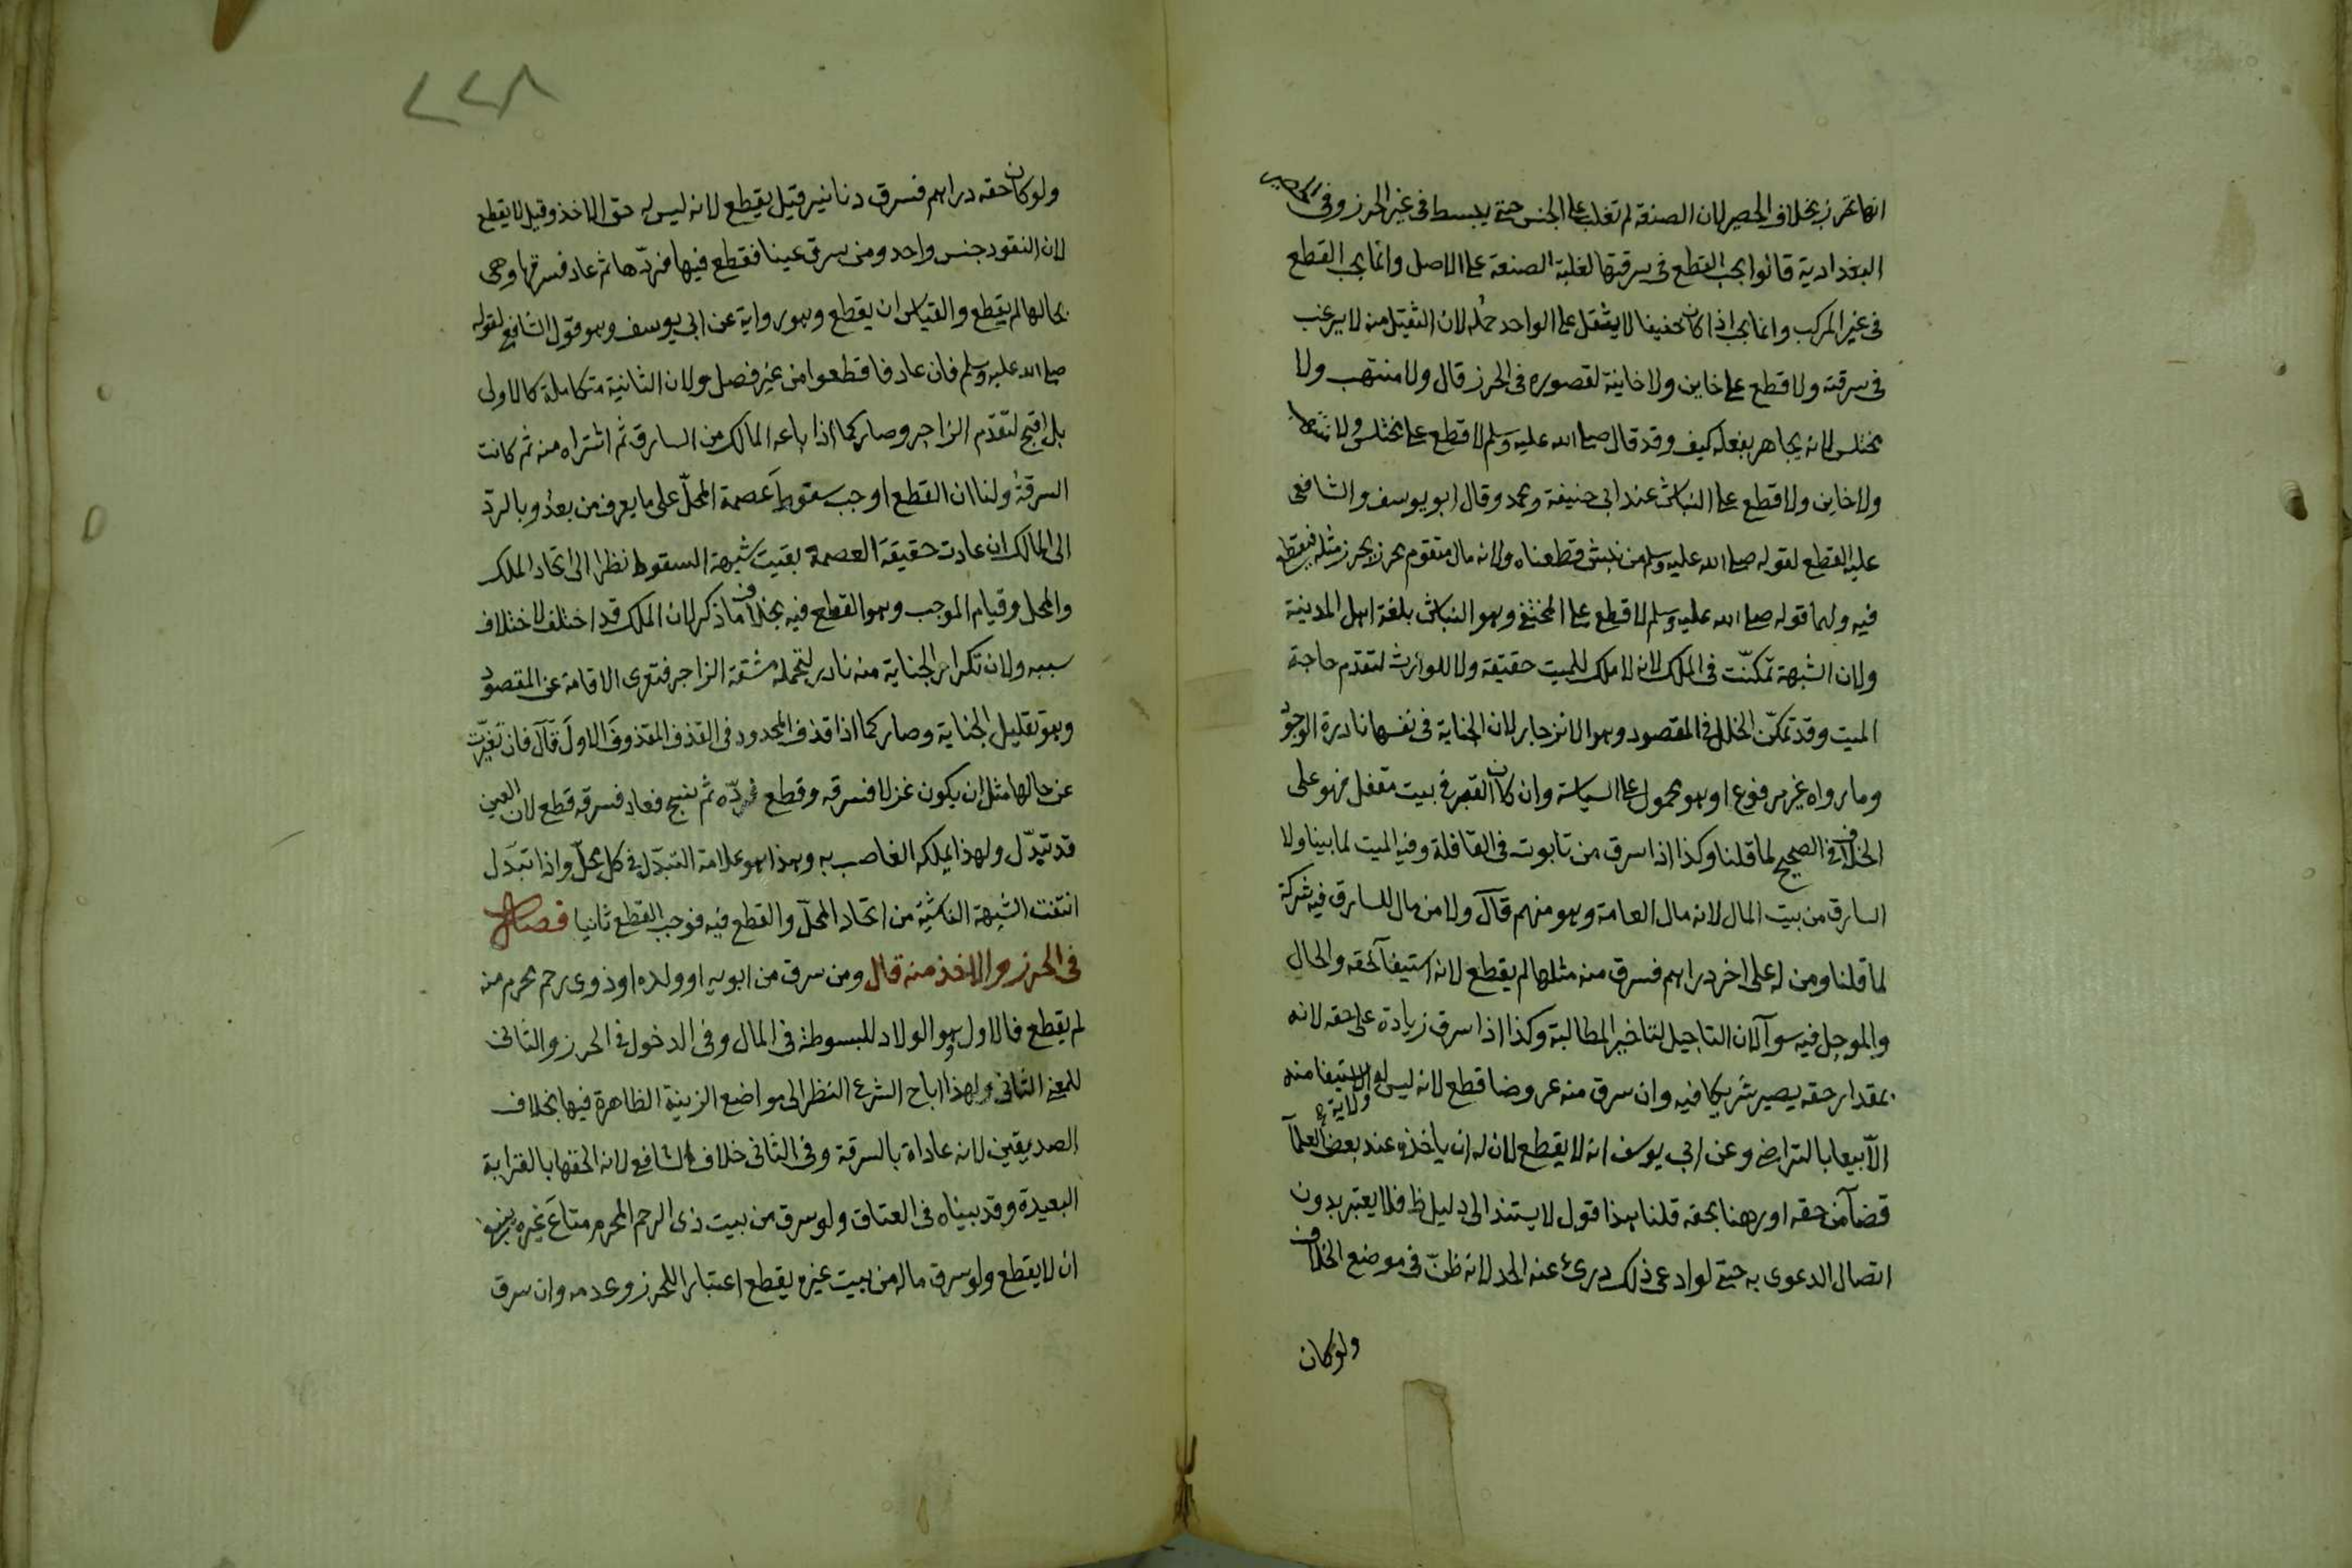 انها تحرز بخلاف الحصير لان الصنعة لم تغلب على الجنس حتى يبسط فى غير الحرز وفى الحصير
البغدادية قالوا يجب القطع فى سرقتها لغلبة الصنعة على الاصل وانما يجب القطع
فى غير المركب وانما يجب اذا كان خفيفا لا يثقل على الواحد حمله لان الثقيل منه لا يرغب
فى سرقته ولا قطع على خاين ولا خاينة لقصوره فى الحرز قال ولا منتهب ولا
مختلس لانه يجاهر بفعله كيف وقد قال صلى الله عليه وسلم لا قطع على مختلس ولا
ولا خاين ولا قطع على النباش عند ابى حنيفة ومحمد وقال ابو يوسف والشافعى
عليه القطع لقوله صلى الله عليه وسلم من نبش قطعناه ولانه مال متقوم محرز بحرز مثله فيقطع
فيه ولهما قوله صلى الله عليه وسلم لا قطع على المختفى وهو النباش بلغة اهل المدينة
ولان الشبهة تمكنت فى الملك لانه لا ملك للميت حقيقة ولا للوارث لتقدم حاجة
الميت وقد تمكن الخلل فى المقصود وهو الانزجار لان الجناية فى نفسها نادرة الوجود
وما رواه غير مرفوع او هو محمول على السياسة وان كان القبر فى بيت مقفل فهو على
الخلاف فى الصحيح لما قلنا وكذا اذا سرق من تابوت فى القافلة وفيه الميت لما بينا ولا
السارق من بيت المال لانه مال العامة وهو منهم قال ولا من مال للسارق فيه شركة
لما قلنا ومن له على اخر دراهم فسرق منه مثلها لم يقطع لانه استيفآ لحقه والحال
والموجل فيه سوآ لان التاجيل لتاخير المطالبة وكذا اذا سرق زيادة على حقه لانه
بمقدار حقه يصير شريكا فيه وان سرق منه عروضا قطع لانه ليس له ولاية الاستيفا منه
الا بيعا بالتراضى وعن ابى يوسف انه لا يقطع لان له ان ياخذه عند بعض العلمآ
قضآ من حقه او رهنا بحقه قلنا هذا قول لا يستند الى دليل ظ فلا يعتبر بدون
اتصال الدعوى به حتى لو ادعى ذلك درئ عنه الحد لانه ظن فى موضع الخلاف
ولو كان
٢٢٨
ولو كان حقه دراهم فسرق دنانير قيل يقطع لانه ليس له حق الاخذ وقيل لا يقطع
لان النقود جنس واحد ومن سرق عينا فقطع فيها فردّها ثم عاد فسرقها وهى
بحالها لم يقطع والقياس ان يقطع وهو رواية عن ابى يوسف وهو قول الشافعى لقوله
صلى الله عليه وسلم فان عاد فاقطعوا من غير فصل ولان الثانية متكاملة كالاولى
بل اقبح لتقدّم الزاجر وصار كما اذا باعه المالك من السارق ثم اشتراه منه ثم كانت
السرقة ولنا ان القطع اوجب سقوط عصمة المحلّ على ما يعرف من بعد وبالردّ
الى المالك ان عادت حقيقة العصمة بقيت شبهة السقوط نظرا الى اتحاد الملك
والمحل وقيام الموجب وهو القطع فيه بخلاف ما ذكر لان الملك قد اختلف لاختلاف
سببه ولان تكرار الجناية منه نادر لتحمله مشقة الزاجر فتعرى الاقامة عن المقصود
وهو تقليل الجناية وصار كما اذا قذف المحدود فى القذف المقذوف الاول قال فان تغيرت
عن حالها مثل ان يكون غزلا فسرقه وقطع فردّه ثم نسج فعاد فسرقه قطع لان العين
قد تبدّل ولهذا يملكه الغاصب به وهذا هو علامة التبدّل فى كل محلّ واذا تبدّل
انتفت الشبهة الناشية من اتحاد المحلّ والقطع فيه فوجب القطع ثانيا فصل
فى الحرز والاخذ منه قال ومن سرق من ابويه او ولده او ذوى رحم محرم منه
لم يقطع فالاول وهو الولاد للبسوطة فى المال وفى الدخول فى الحرز والثانى
للمعنى الثانى ولهذا اباح الشرع النظر الى مواضع الزينة الظاهرة فيها بخلاف
الصديقين لانه عاداة بالسرقة وفى الثانى خلاف الشافعى لانه الحقها بالقرابة
البعيدة وقد بيناه فى العتاق ولو سرق من بيت ذى الرحم المحرم متاع غيره ينبغى
ان لا يقطع ولو سرق ماله من بيت غيره يقطع اعتبارا للحرز وعدمه وان سرق